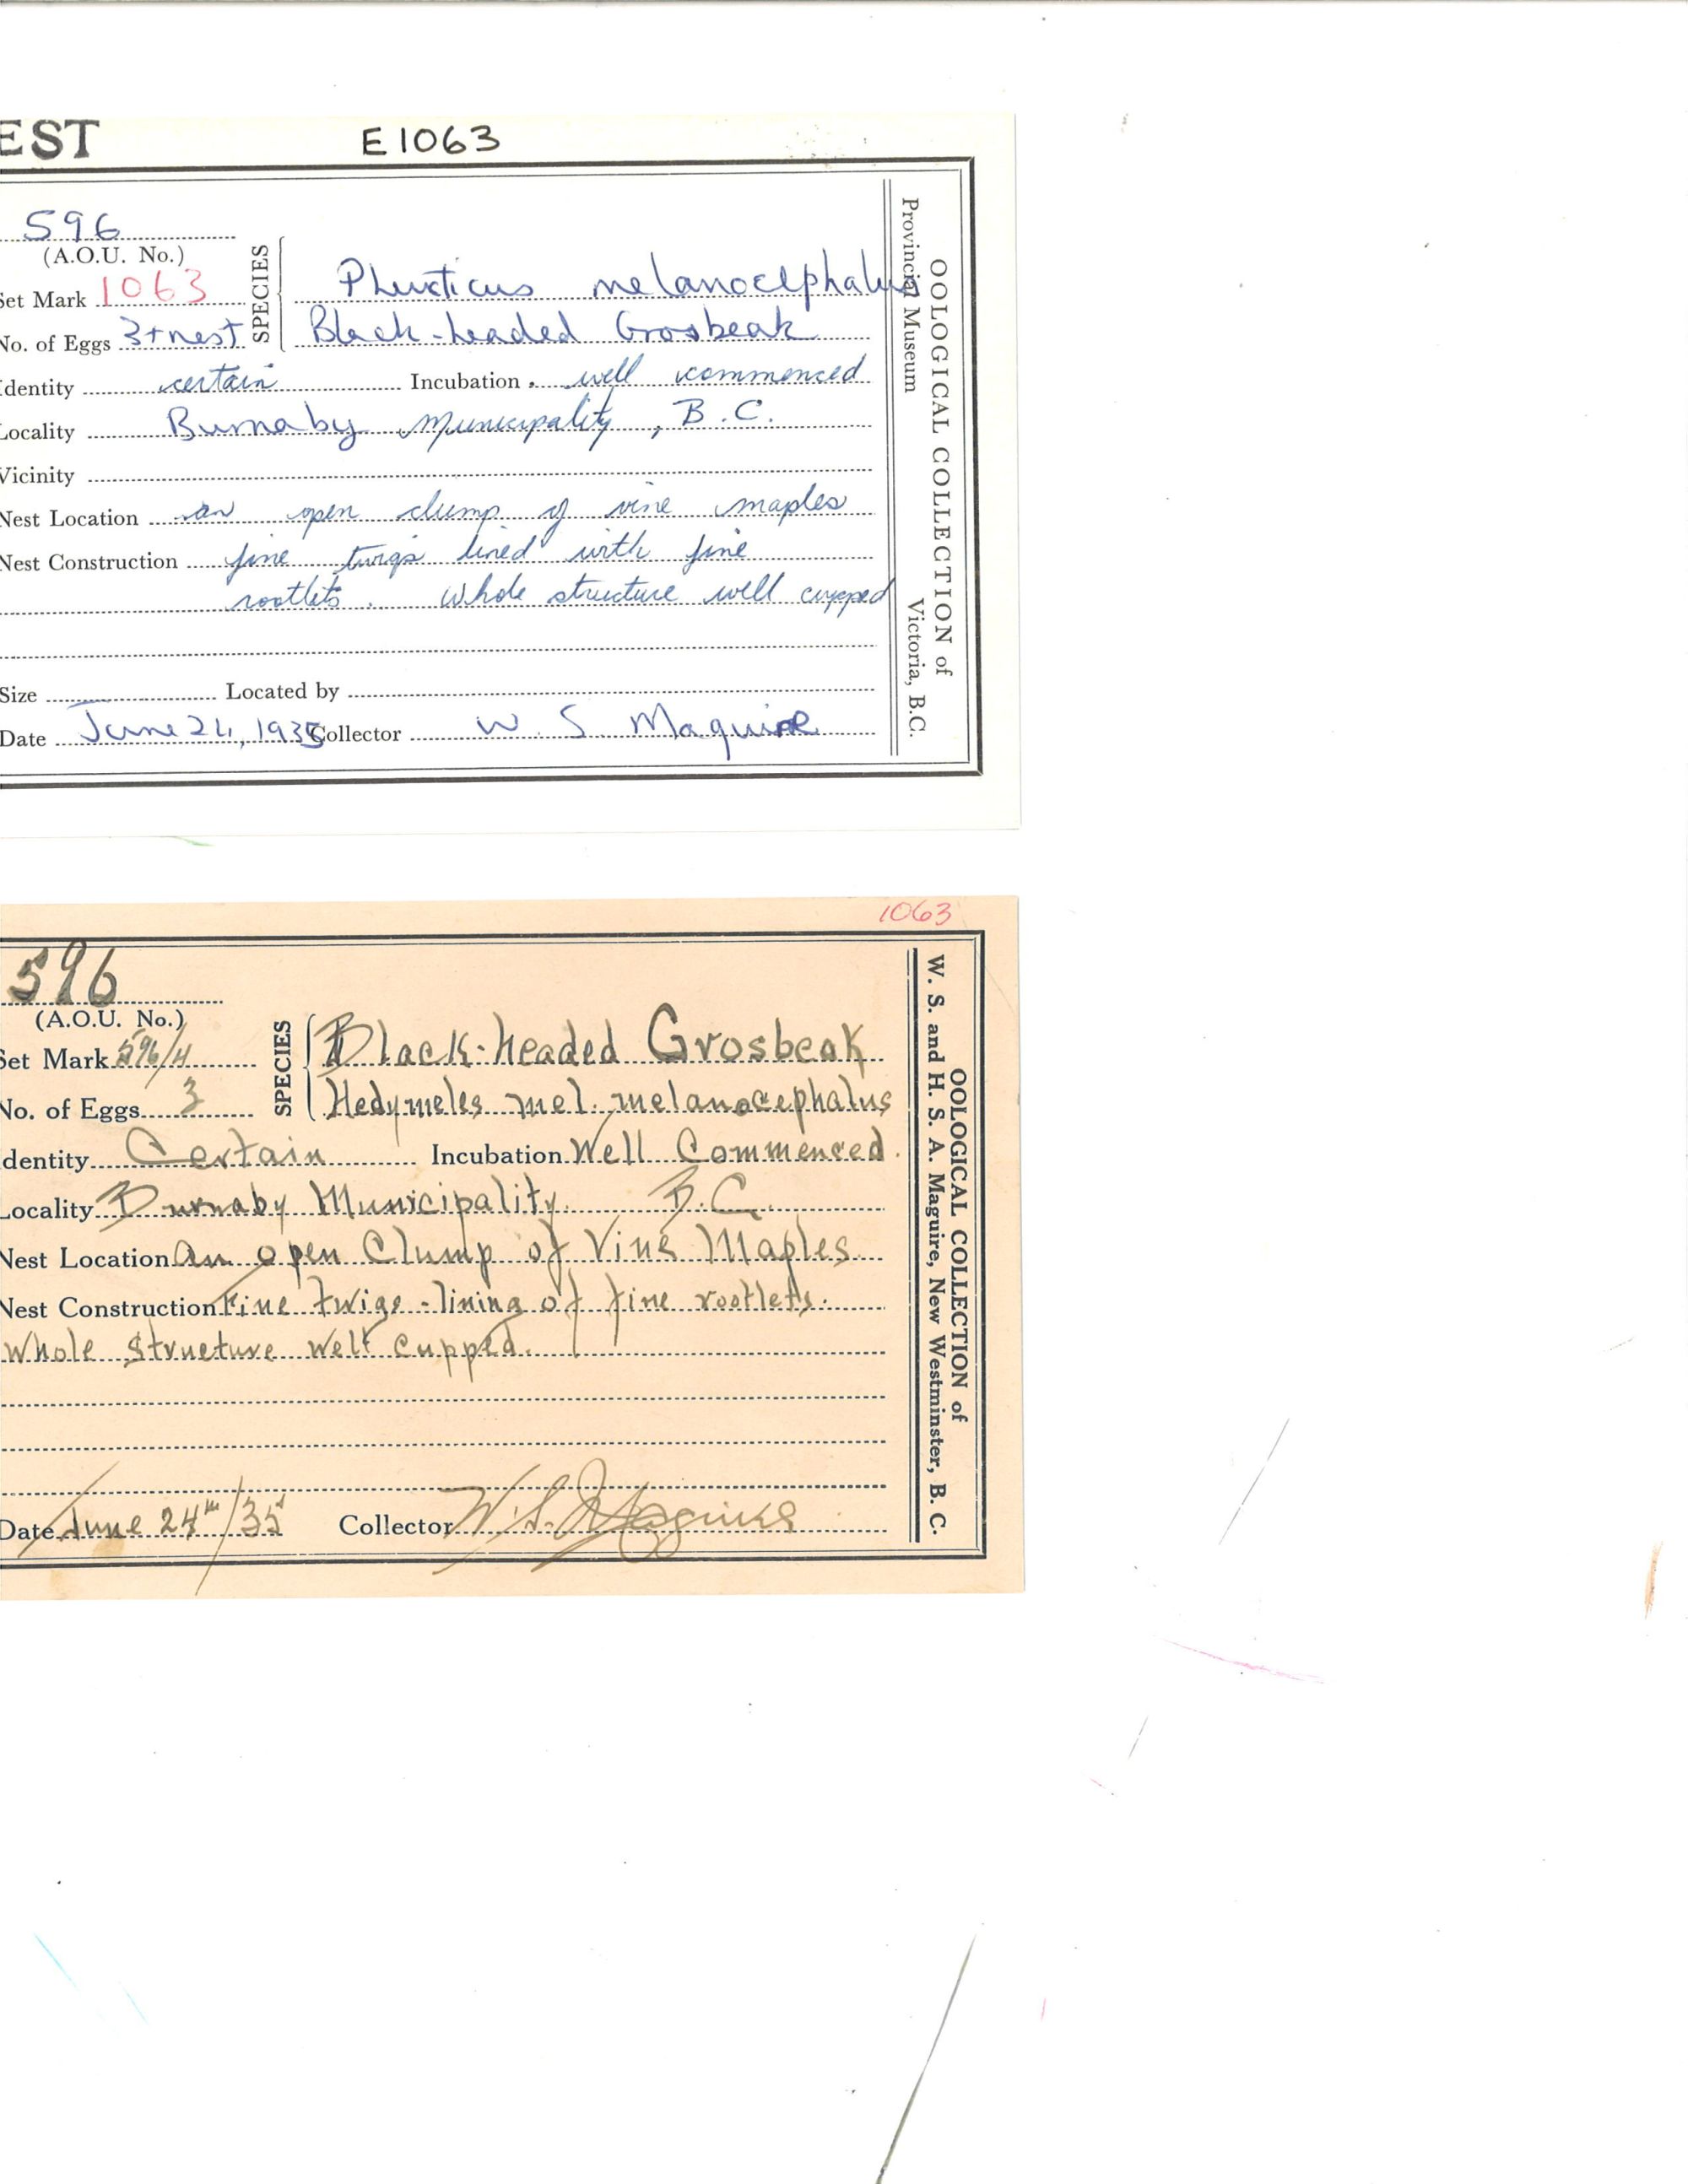 EST E1063
596
(A.O.U. No.)
Set Mark 1063
No. of Eggs 3+nest
SPECIES
Pheucticus melanocephalus
Black-headed Grosbeak
Identity certain Incubation well commenced
Locality Burnaby Municipality, B.C.
Vicinity
Nest Location an open clump of vine maples
Nest Construction fine twigs lined with fine
rootlets. Whole structure well cupped
Size Located by
Date June 24, 1935 Collector W. S Maguire
OOLOGICAL COLLECTION of
Provincial Museum Victoria, B.C.
1063
596
(A.O.U. No.)
Set Mark 596/4
No. of Eggs 3
SPECIES
Black-headed Grosbeak
Hedymeles mel. melanocephalus
Identity Certain Incubation Well Commenced.
Locality Burnaby Municipality. B.C.
Nest Location An open Clump of Vine Maples
Nest Construction Fine twigs - lining of fine rootlets.
Whole Structure Well Cupped.
Date June 24th/35 Collector W. S. Maguire
OOLOGICAL COLLECTION of
W. S. and H. S. A. Maguire, New Westminster, B. C.